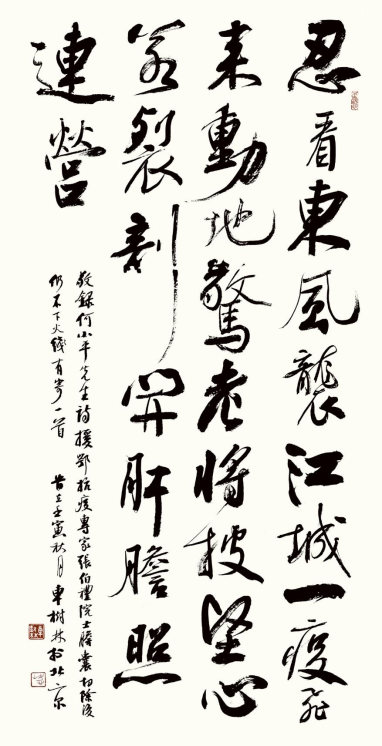 忍看東風襲江城一疫飛
来動地驚老将披堅心
若裂割開肝膽照
連營
敬録何小平先生詩援鄂抗疫專家張伯禮院士膽囊切除後
仍不下火綫有寄一首 歲在壬寅秋月車樹林於北京